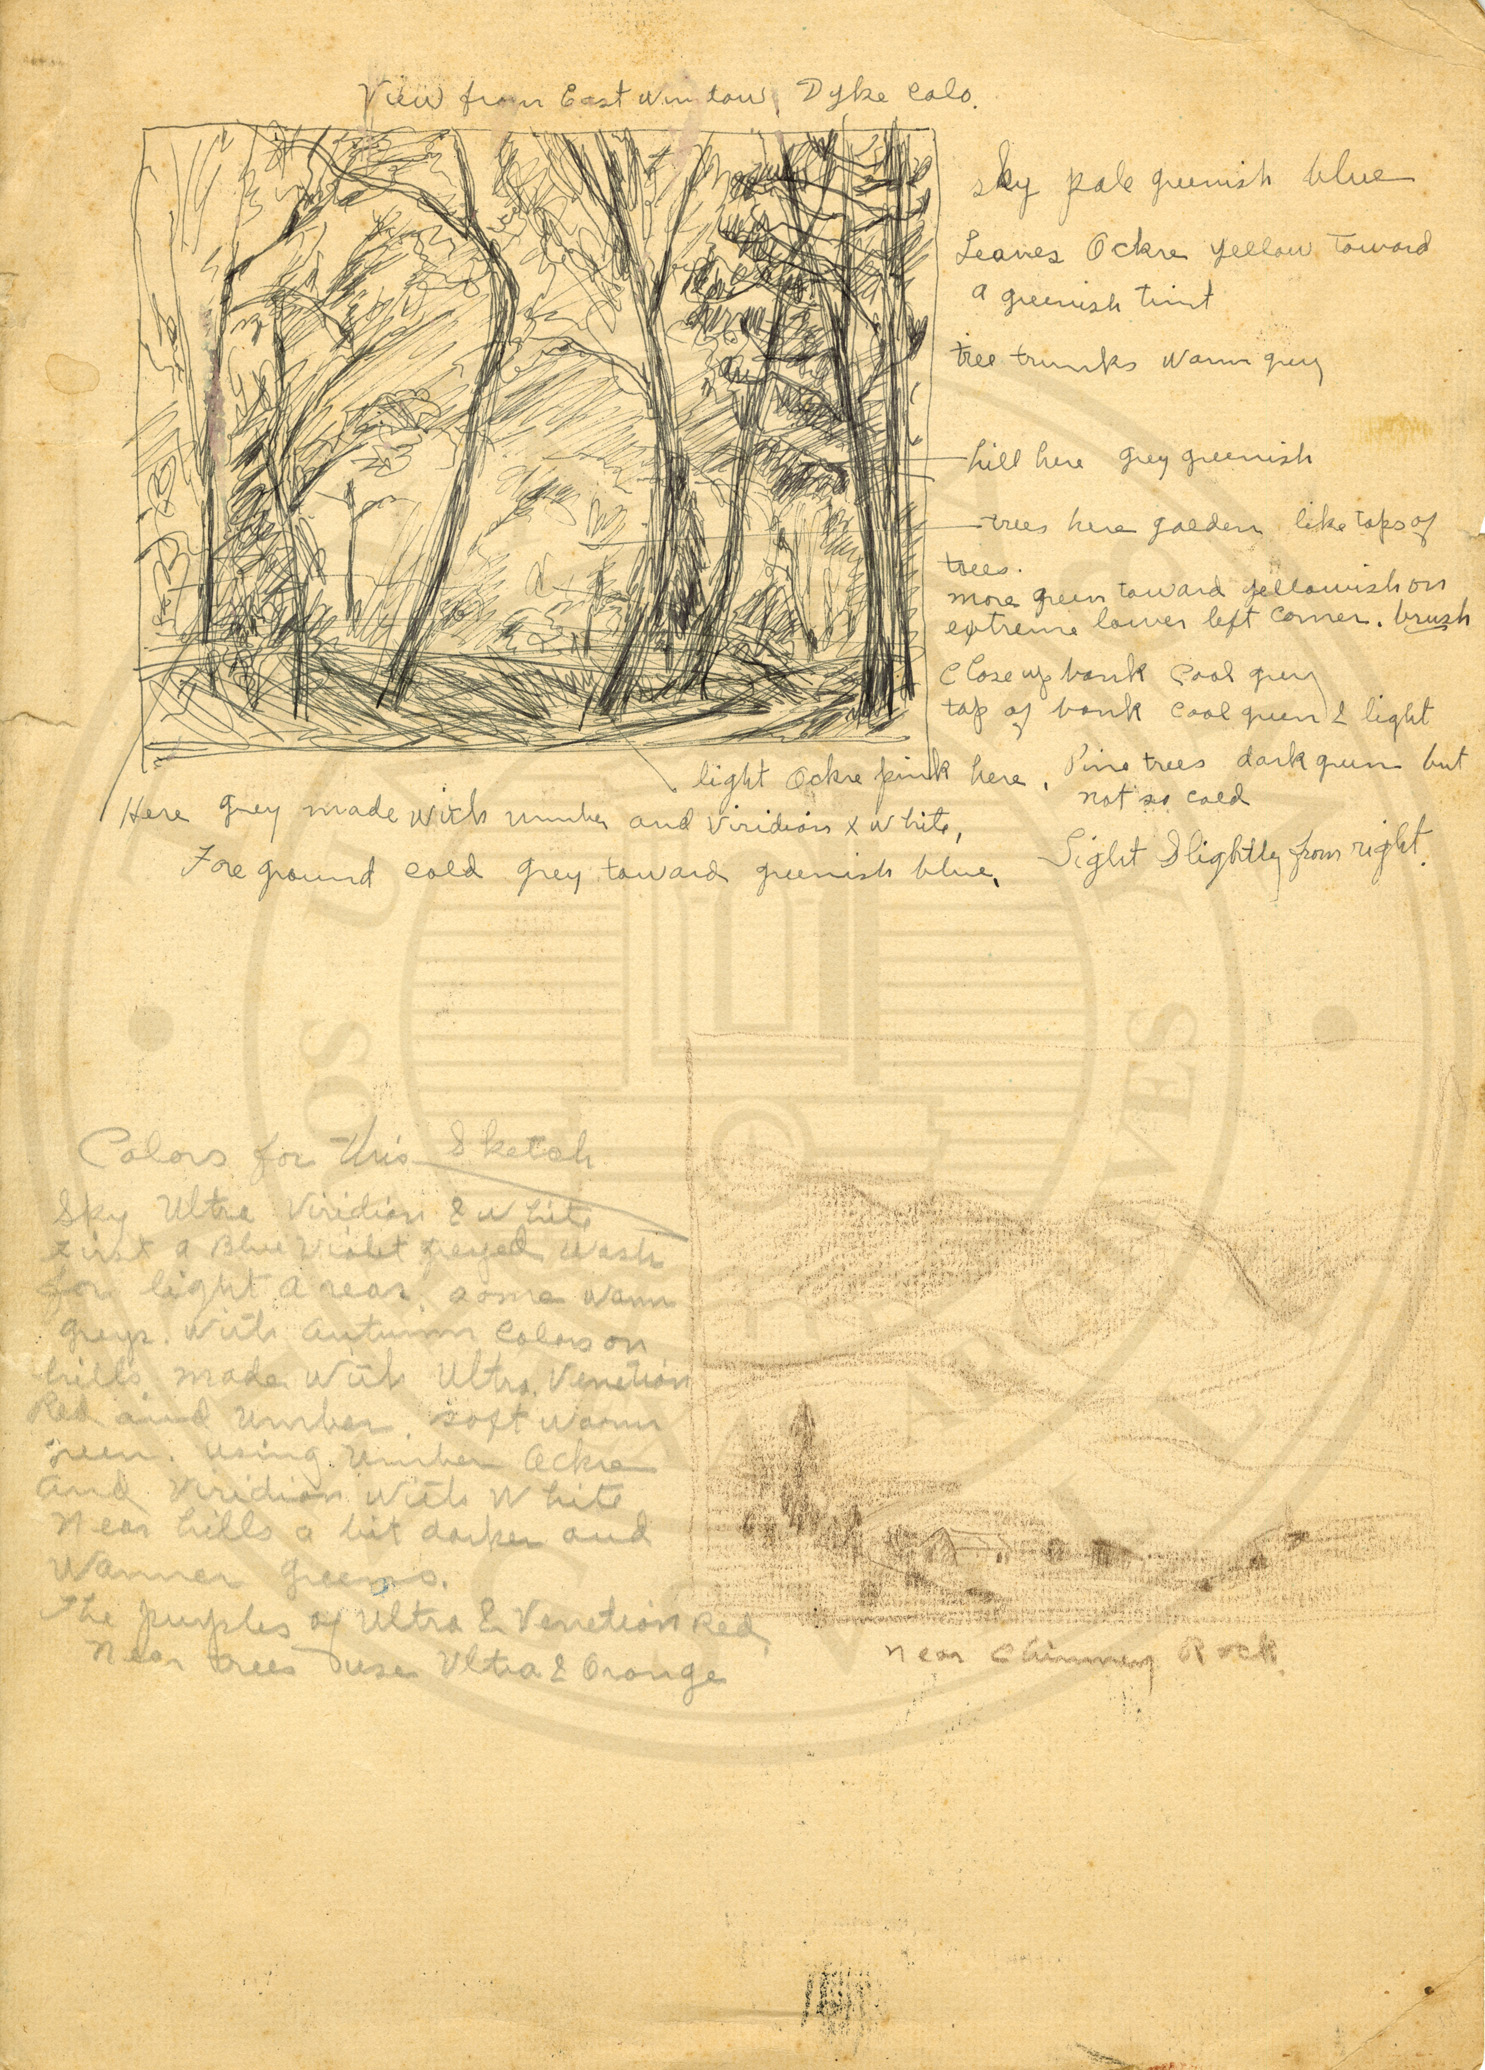 View from East window, Dyke Colo.
Sky pale greenish blue
Leaves Ockre yellow toward
a greenish tint
tree trunks warm grey
hill here grey greenish
trees here golden like tops of
trees.
more green toward yellowish on
extreme lower left corner. brush
Close up bank Cool grey
top of bank cool green & light
light Ockre pink here,
Pine trees dark green but
not so cold
Here grey made with umber and Viridian & white,
Fore ground cold grey toward greenish blue,
Light slightly from right.
Colors for this Sketch
Sky Ultra Viridian & white
first a Blue Violet greyed wash
for light areas, some warm
greys. with Autumn Colors on
hills made with Ultra, Venetian
Red and Umber. soft warm
green. using Umber Ockre
and Viridian with White
Near hills a bit darker and
Warmer greens.
The purples of Ultra & Venetian Red,
Near trees use Ultra & Orange
near Chimney Rock.
ARCHIVES